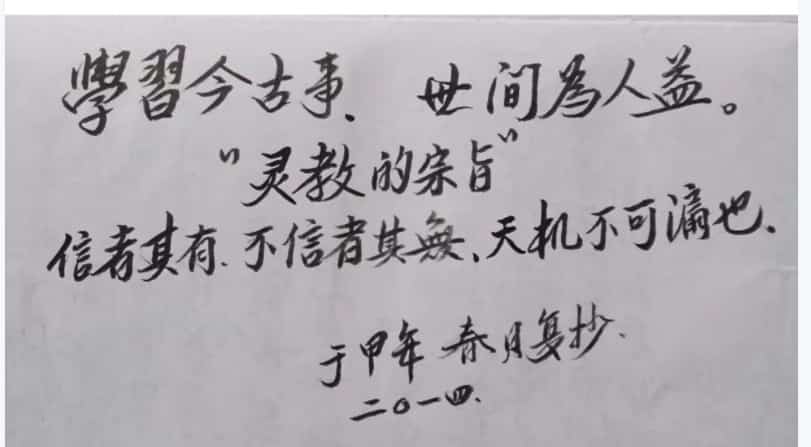 學習今古事、世间為人益。
"灵教的宗旨"
信者其有、不信者其無、天机不可漏也.
于甲年 春月复抄.
二〇一四.